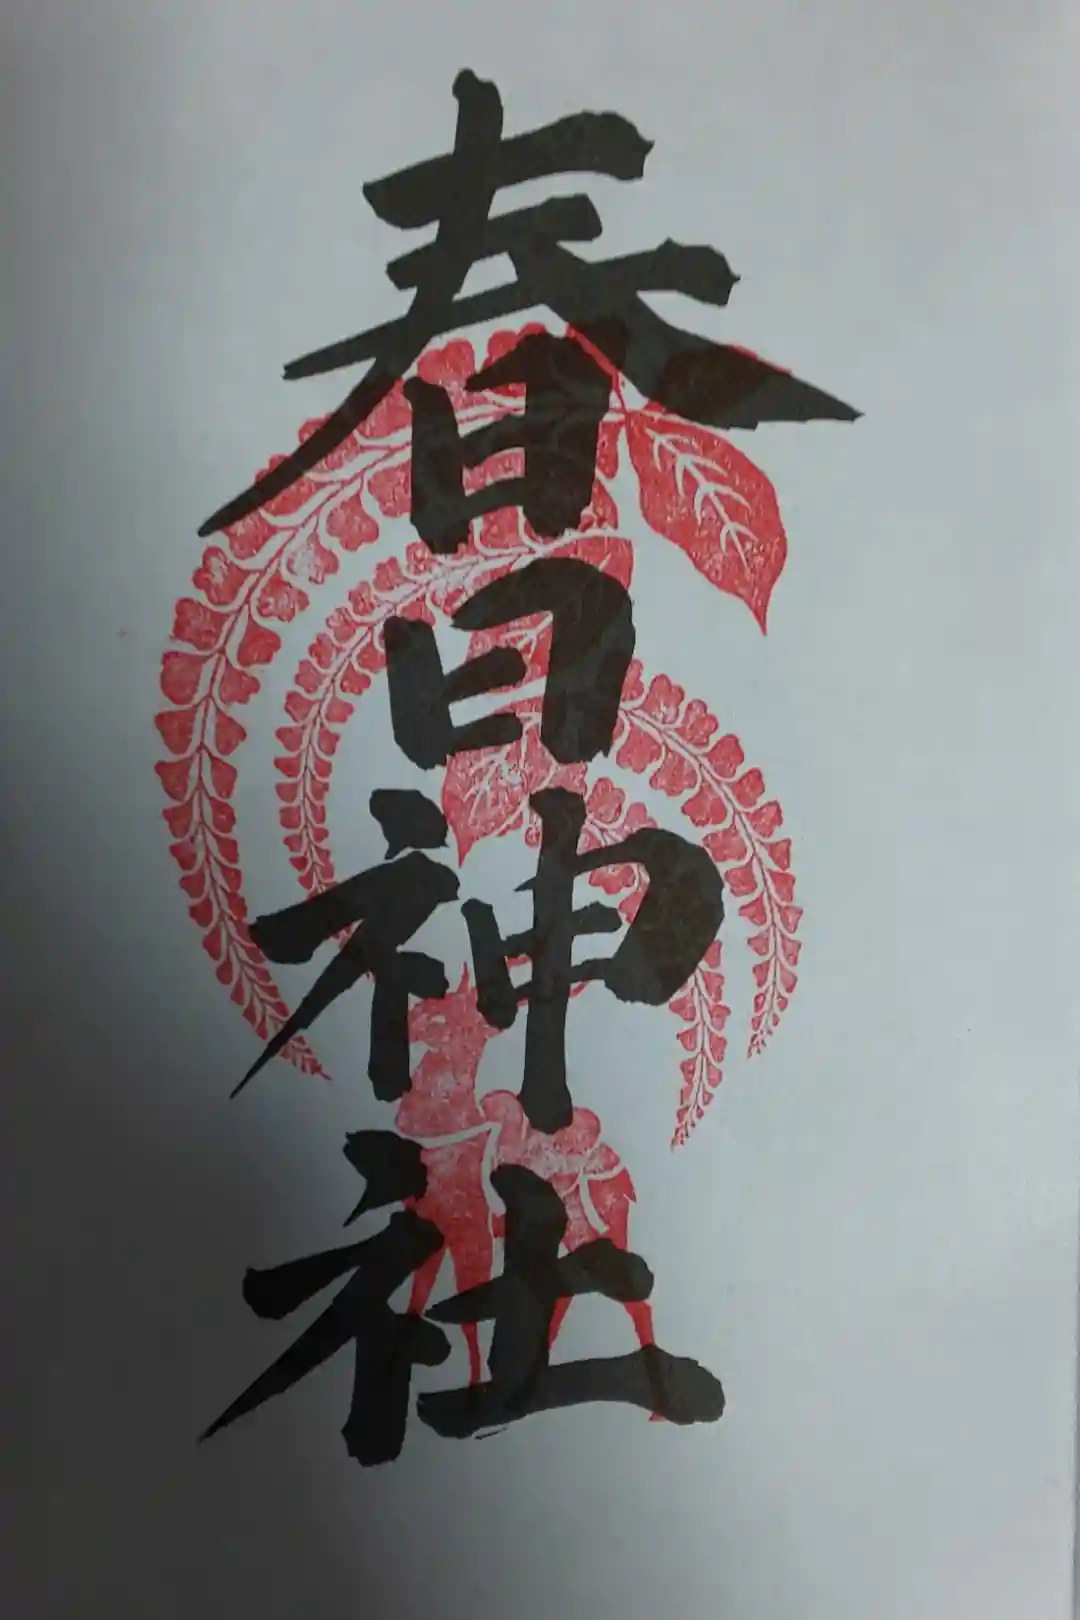 春日神社